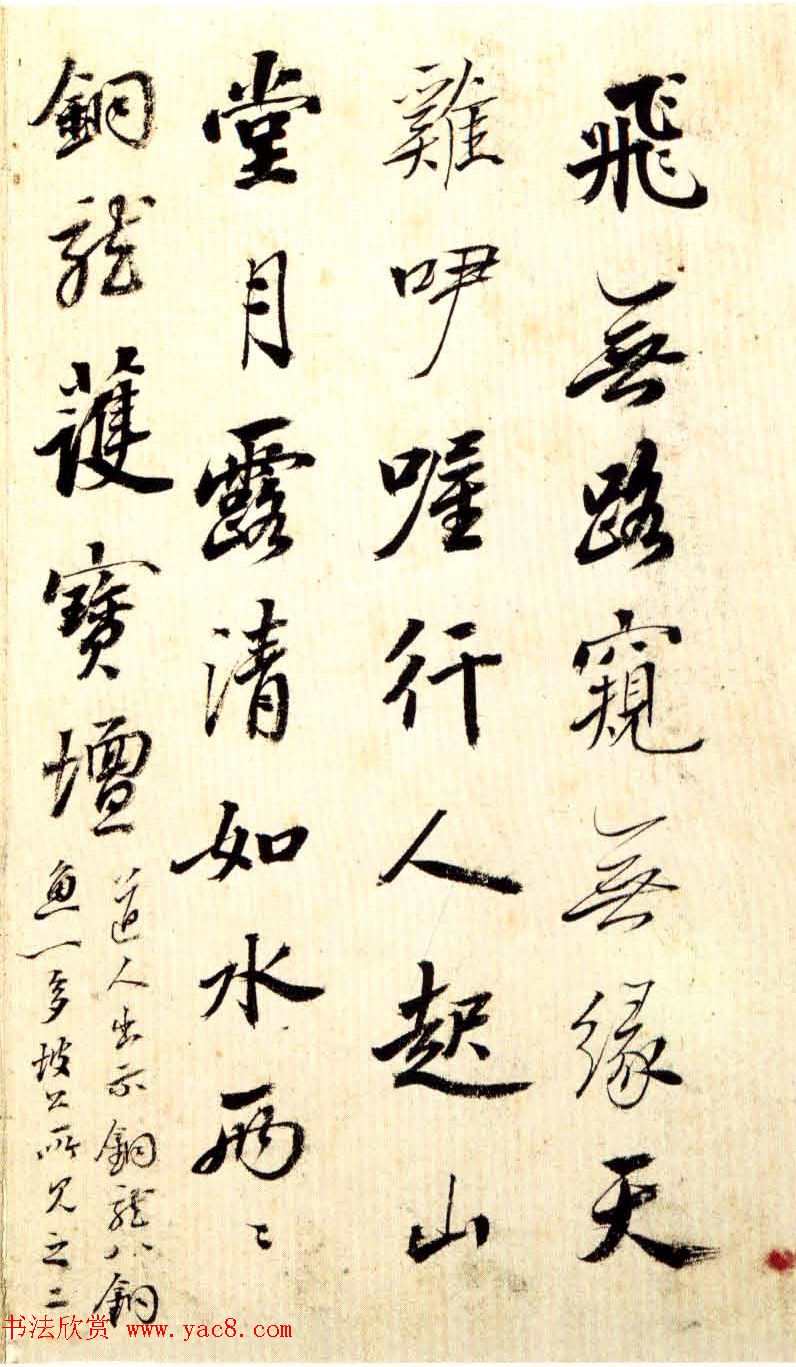 飛無路窺無緣天
雞咿喔行人起山
堂月露清如水兩〻
銅龍護寶壇
道人出示銅龍八銅
魚一多坡公所見之二
书法欣赏 www.yac8.com